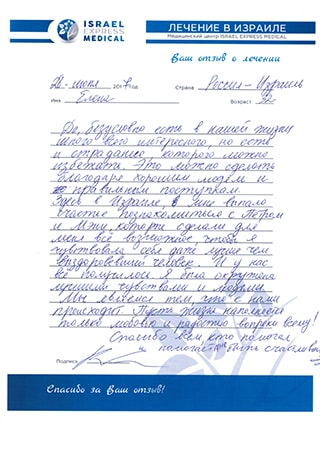 ISRAEL
EXPRESS
MEDICAL
ЛЕЧЕНИЕ В ИЗРАИЛЕ
Медицинский центр ISRAEL EXPRESS MEDICAL
Ваш отзыв о лечении
20 г.
Страна Россия - Израиль
Имя Елена
Возраст
Да, безусловно есть в нашей жизни
много всего интересного, но есть
и страдания которого можно
избежать. Это можно сделать
благодаря хорошим людям и
правильным поступкам.
Здесь в Израиле, мне выпало
счастье познакомиться с Петром
и которые сделали для
меня всё возможное чтобы я
чувствовала себя даже лучше чем
выздоровевший человек. И у нас
всё получилось. Я была окружена
лучшими чувствами и людьми.
Мы являемся тем, что с нами
происходит. Пусть жизнь наполняется
только любовью и радостью вопреки всему!
Спасибо всем кто помогал,
помогает быть счастливы
Подпись
Спасибо за Ваш отзыв!